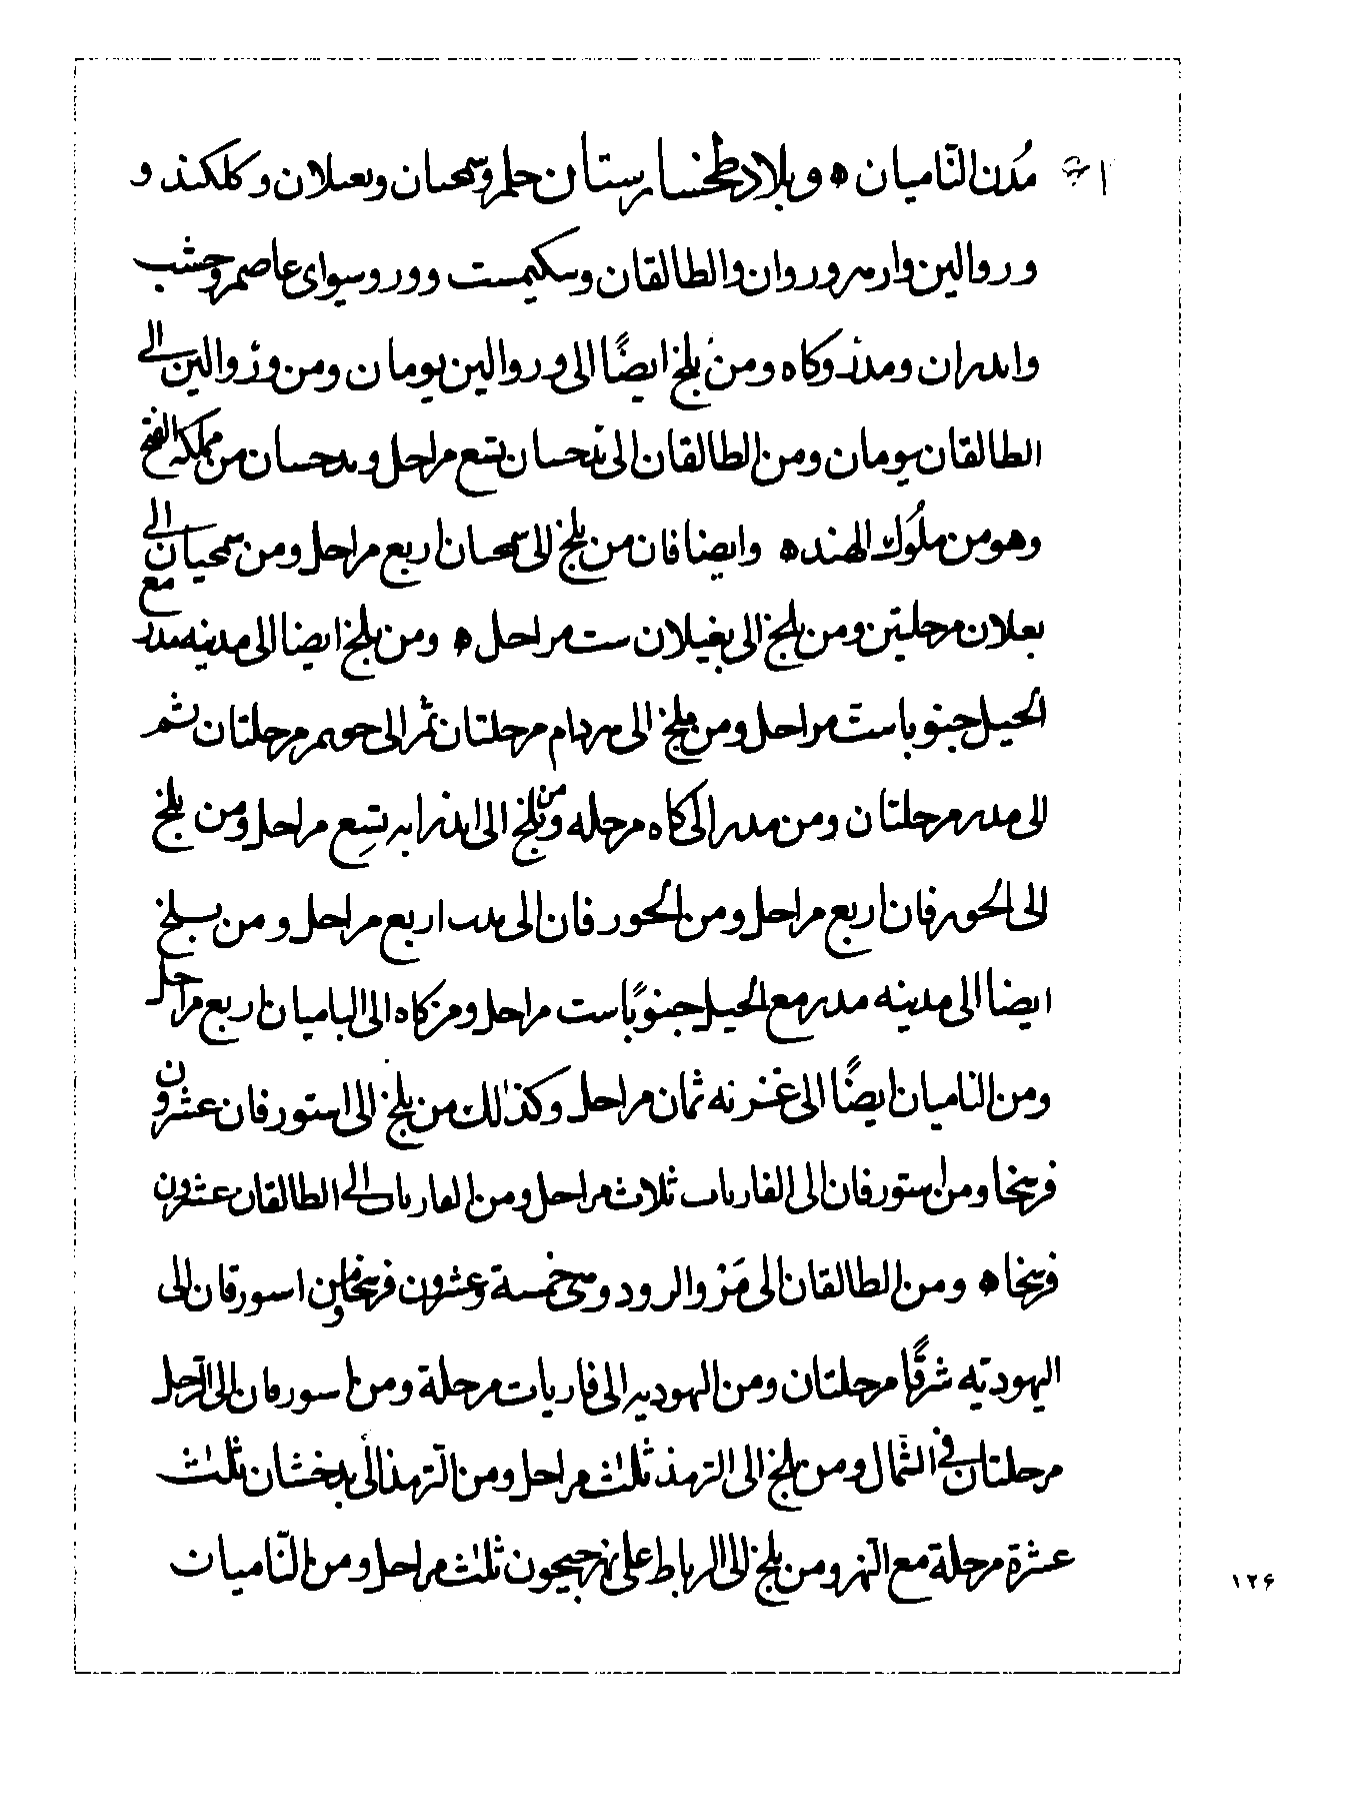 مُدَن النّاميان ه وبلاد طخسارستان حلم وسمحىان وبعىلان وكلكند و
وروالين وارمروروان والطالقان وسكيمست وورو سىواى عاصم وخشب
واىدران ومدرٔوكاه ومن بلخ ايضًا الى وروالين يومان ومن وزوالين الى
الطالقان يومان ومن الطالقان الى ىدحسان تسع مراحل وىدحسان من مملكه الفتح
وهو من ملُوك الهند ه وايضا فان من بلخ الى سمحىان اربع مراحل ومن سمحىان الى
بعلان مرحلتين ومن بلخ الى بغيلان ست مراحل ه ومن بلخ ايضا الى مدينه مدر مع
الجيل جنوبا ست مراحل ومن بلخ الى مردام مرحلتان ثم الى حوىىم مرحلتان ثم
الى مدر مرحلتان ومن مدر الى كاه مرحله ومن بلخ الى اىدرابه تسع مراحل ومن بلخ
الى الحورفان اربع مراحل ومن الحورفان الى اربع مراحل ومن بلخ
ايضا الى مدينه مدر مع الجيل جنوبًا ست مراحل ومن كاه الى الباميان اربع مراحل
ومن الناميان ايضًا الى غزنه ثمان مراحل وكذلك من بلخ الى استورفان عشرون
فرسخا ومن استورفان الى الفارياب ثلاث مراحل ومن الفارياب الى الطالقان عشرون
فرسخا ه ومن الطالقان الى مَرْوالرود وهى خمسة وعشرون فرسخا ومن اسورقان الى
اليهوديّه شرقًا مرحلتان ومن اليهوديه الى فاريات مرحلة ومن اسورفان الى
مرحلتان فى الشمال ومن بلخ الى الترمذ ثلث مراحل ومن الترمذ الى بدخشان ثلث
عشرة مرحلة مع النهر ومن بلخ الى الرباط على نهر جيحون ثلث مراحل ومن النّاميان
١٢۶